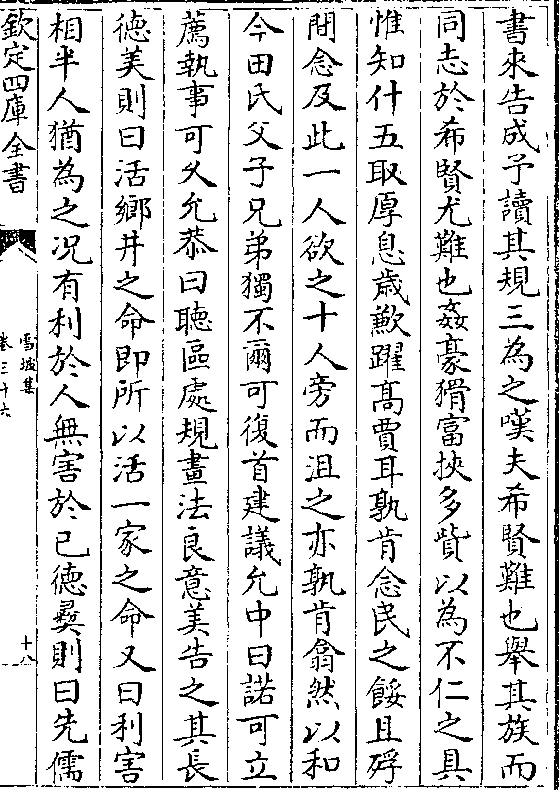 書來告成予讀其規三為之嘆夫希賢難也舉其族而
同志於希賢尤難也姦豪猾富挾多貲以為不仁之具
惟知什五取厚息歲歉躍髙賈耳孰肯念民之餒且殍
間念及此一人欲之十人旁而沮之亦孰肯翕然以和
今田氏父子兄弟獨不爾可復首建議允中曰諾可立
薦執事可久允恭曰聽區處規畫法良意美告之其長
德美則曰活鄉井之命即所以活一家之命又曰利害
相半人猶為之况有利於人無害於已德彛則曰先儒
欽定四庫全書
雪坡集
卷三十六
十八